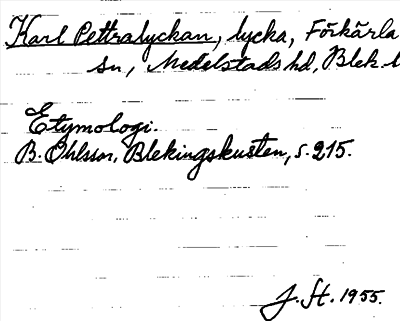 Karl Pettralyckan, lycka, Förkärla
sn, Medelstads hd, Blek. l
Etymologi.
B. Ohlsson, Blekingskusten, s. 215.
J. St. 1955.